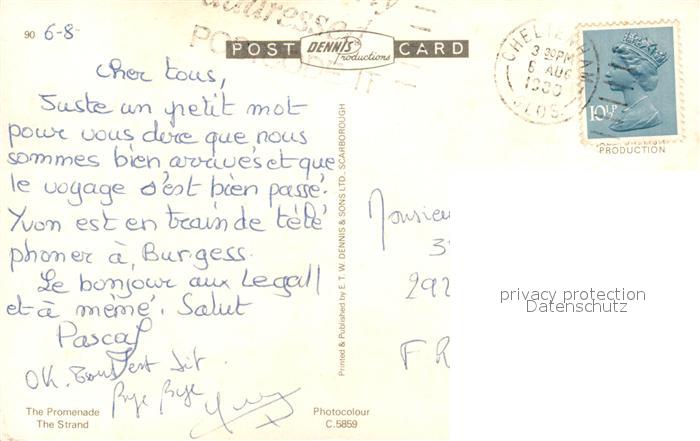 90 6-8
addressed
POSTCODE IT
POST DENNIS Productions CARD
CHELTENHAM
3 30PM
6 AUG
1980
GLOS
10½P
PRODUCTION
cher tous,
Juste un petit mot
pour vous dire que nous
sommes bien arrivés et que
le voyage s'est bien passé.
Yvon est en train de télé
phoner à Burgess.
Le bonjour aux Legall
et à mémé. Salut
Pascal
OK. Tout est dit.
Bye Bye
Monsieu
3
292
F R
Printed & Published by E. T. W. DENNIS & SONS LTD., SCARBOROUGH
privacy protection
Datenschutz
The Promenade
The Strand
Photocolour
C.5859